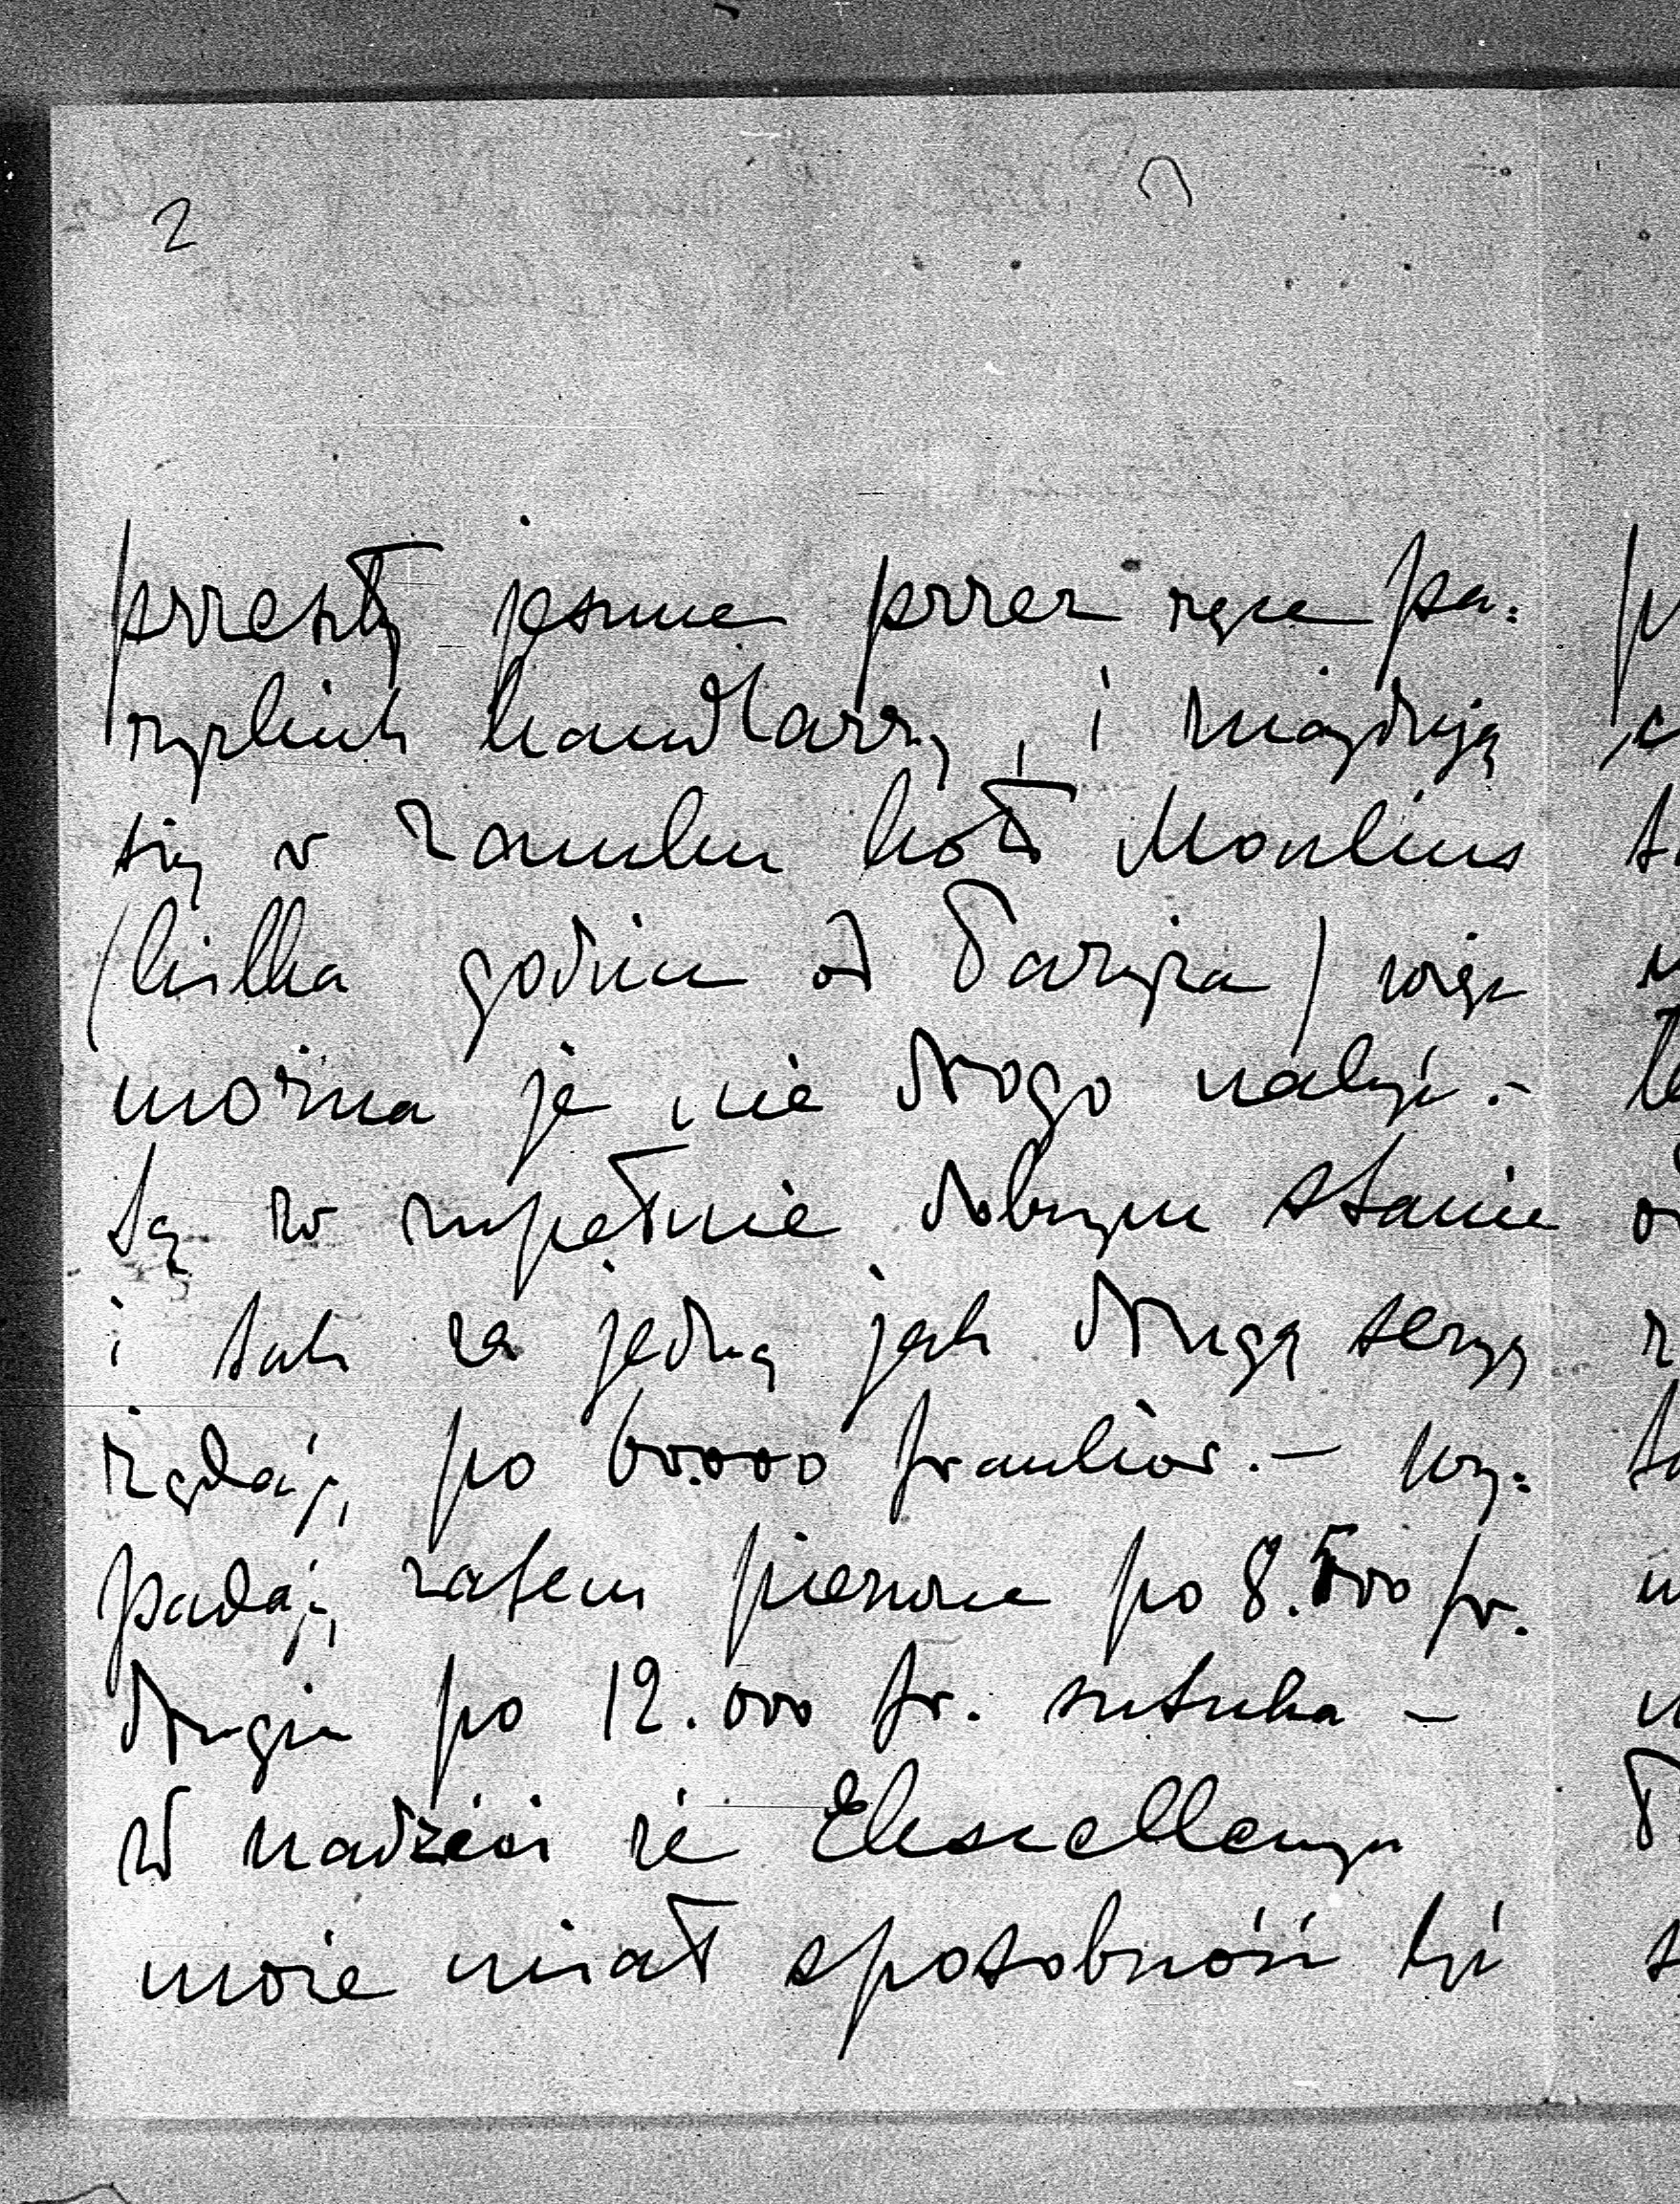 2
przeszły jeszcze przez ręce pa-
ryzkich handlarzy, i znajdują
się w zamku koło Moulins
(kilka godzin od Paryża) więc
można je nie drogo nabyć. -
Są w zupełnie dobrym stanie
i tak za jedną jak drugą seryę
żądają po 60.000 franków. - Wy-
padają zatem pierwsze po 8.500 fr.
drugie po 12.000 fr. sztuka -
W nadziei że Ekscellencya
może miał sposobność być